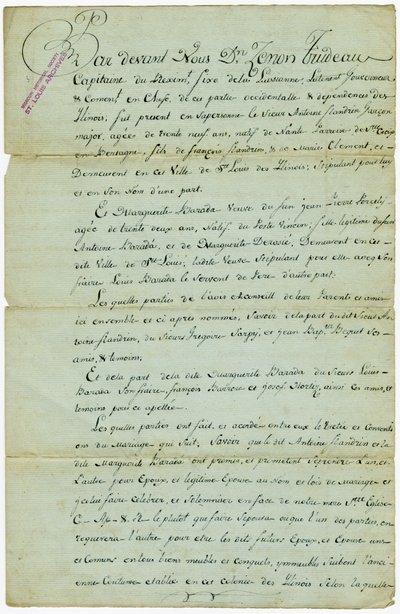 MISSOURI HISTORICAL SOCIETY
ST. LOUIS ARCHIVES
Par devant Nous Dn Zenon Trudeau
Capitaine du Reximt fixe dela Luisianne, Lutenent Gouverneur
& Coment en Chefe de ces partie occidentalle & dependences des
Ylinois, fut present en Sapersonne le Sieur Antoine Flandrin Garçon
major, agée de trente neuf ans, natif de Nante Parroise de Ste Croix
en Bretagne, fils de françois flandrin, & de Marie Clement, et
Demeurent en ces Ville de St Louis des Ylinois; Stipulant pour luy
et en Son Nom d'une part.
Et Marguerite Barada Veuve du fun jean Pierre
agée de trente deux ans, Natif. du Poste Vincen; fille legiteme du fun
Antoine Barada, et de Marguerite Demeurent en ces
dite Ville de Sn Louis; ladite Veuve Stipulant pour elle aveq Son
fraire Louis Barada le Servent de Pere d'autre part:
Les quelles parties de l'avis & conseill de leur Parents et amis
ici ensemble et ci après nommés, Savoir de la part du dit Sieur An-
toine flandrin, du Sieurs Gregoire Sarpy, et jean Bapte Ses
amis, & temoins;
Et dela part de la dite Marguerite Barada du Sieurs Louis
Barada Son fraire, françois et josef Hortiz, ainsi Ces amis, et
temoins pour ce apellés.
Les quelles parties ont fait, et acorde entre eux le Traité et Conventi
ons du Mariage qui Suit, Savoir que le dit Antoine flandrin et la
dite Marguerite Barada ont promis, et prometent Se prendre L'un, et
L'autre pour Epoux, et legitime Epouse au Nom et lois de Mariage et
ycelui faire Celebrer, et Solemniser en face de notre mere Ste Eglise
C. A. & R. le plutot que faire Sepoura ou que l'un des parties, en
requerira l'autre pour etre les dits futurs Epoux, et Epouse uns
et Comuns en tous biens meubles et conquets, ymmeubles Suibent l'anci-
enne Coutume etablie en ces colonies des Ylinois Selon laquelle